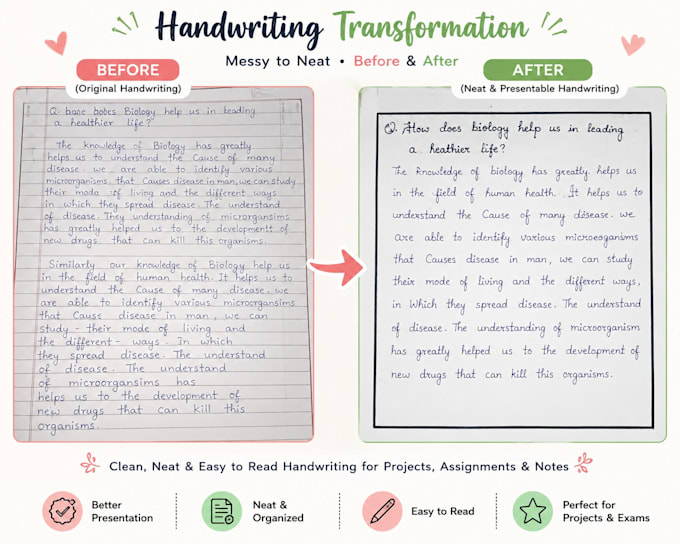 Handwriting Transformation
Messy to Neat • Before & After
BEFORE
(Original Handwriting)
Q. baoe bobes Biology help us in leading
a healthier life?
The knowledge of Biology has greatly
helps us to understand the Cause of many
disease. we are able to identify various
microorganisms that Causes disease in man, we can study
their moda of living and the different ways
in which they spread disease. The understand
of disease. They understanding of microrgansims
has greatly helped us to the development of
new drugs that can kill this organisms.
Similarly our knowledge of Biology help us
in the field of human health. It helps us to
understand the Cause of many disease. we
are able to identify various microorgansims
that Cause disease in man, we can
study - their mode of living and
the different - ways. In which
they spread disease. The understand
of disease. The understand
of microorgansims has
helps us to the development of
new drugs that can kill this
organisms.
AFTER
(Neat & Presentable Handwriting)
Q. How does biology help us in leading
a heathier life?
The knowledge of biology has greatly helps us
in the field of human health. It helps us to
understand the Cause of many disease. we
are able to identify various microeoganisms
that Causes disease in man, we can study
their mode of living and the different ways,
in Which they spread disease. The understand
of disease. The understanding of microorganism
has greatly helped us to the development of
new drugs that can kill this organisms.
Clean, Neat & Easy to Read Handwriting for Projects, Assignments & Notes
Better
Presentation
Neat &
Organized
Easy to Read
Perfect for
Projects & Exams